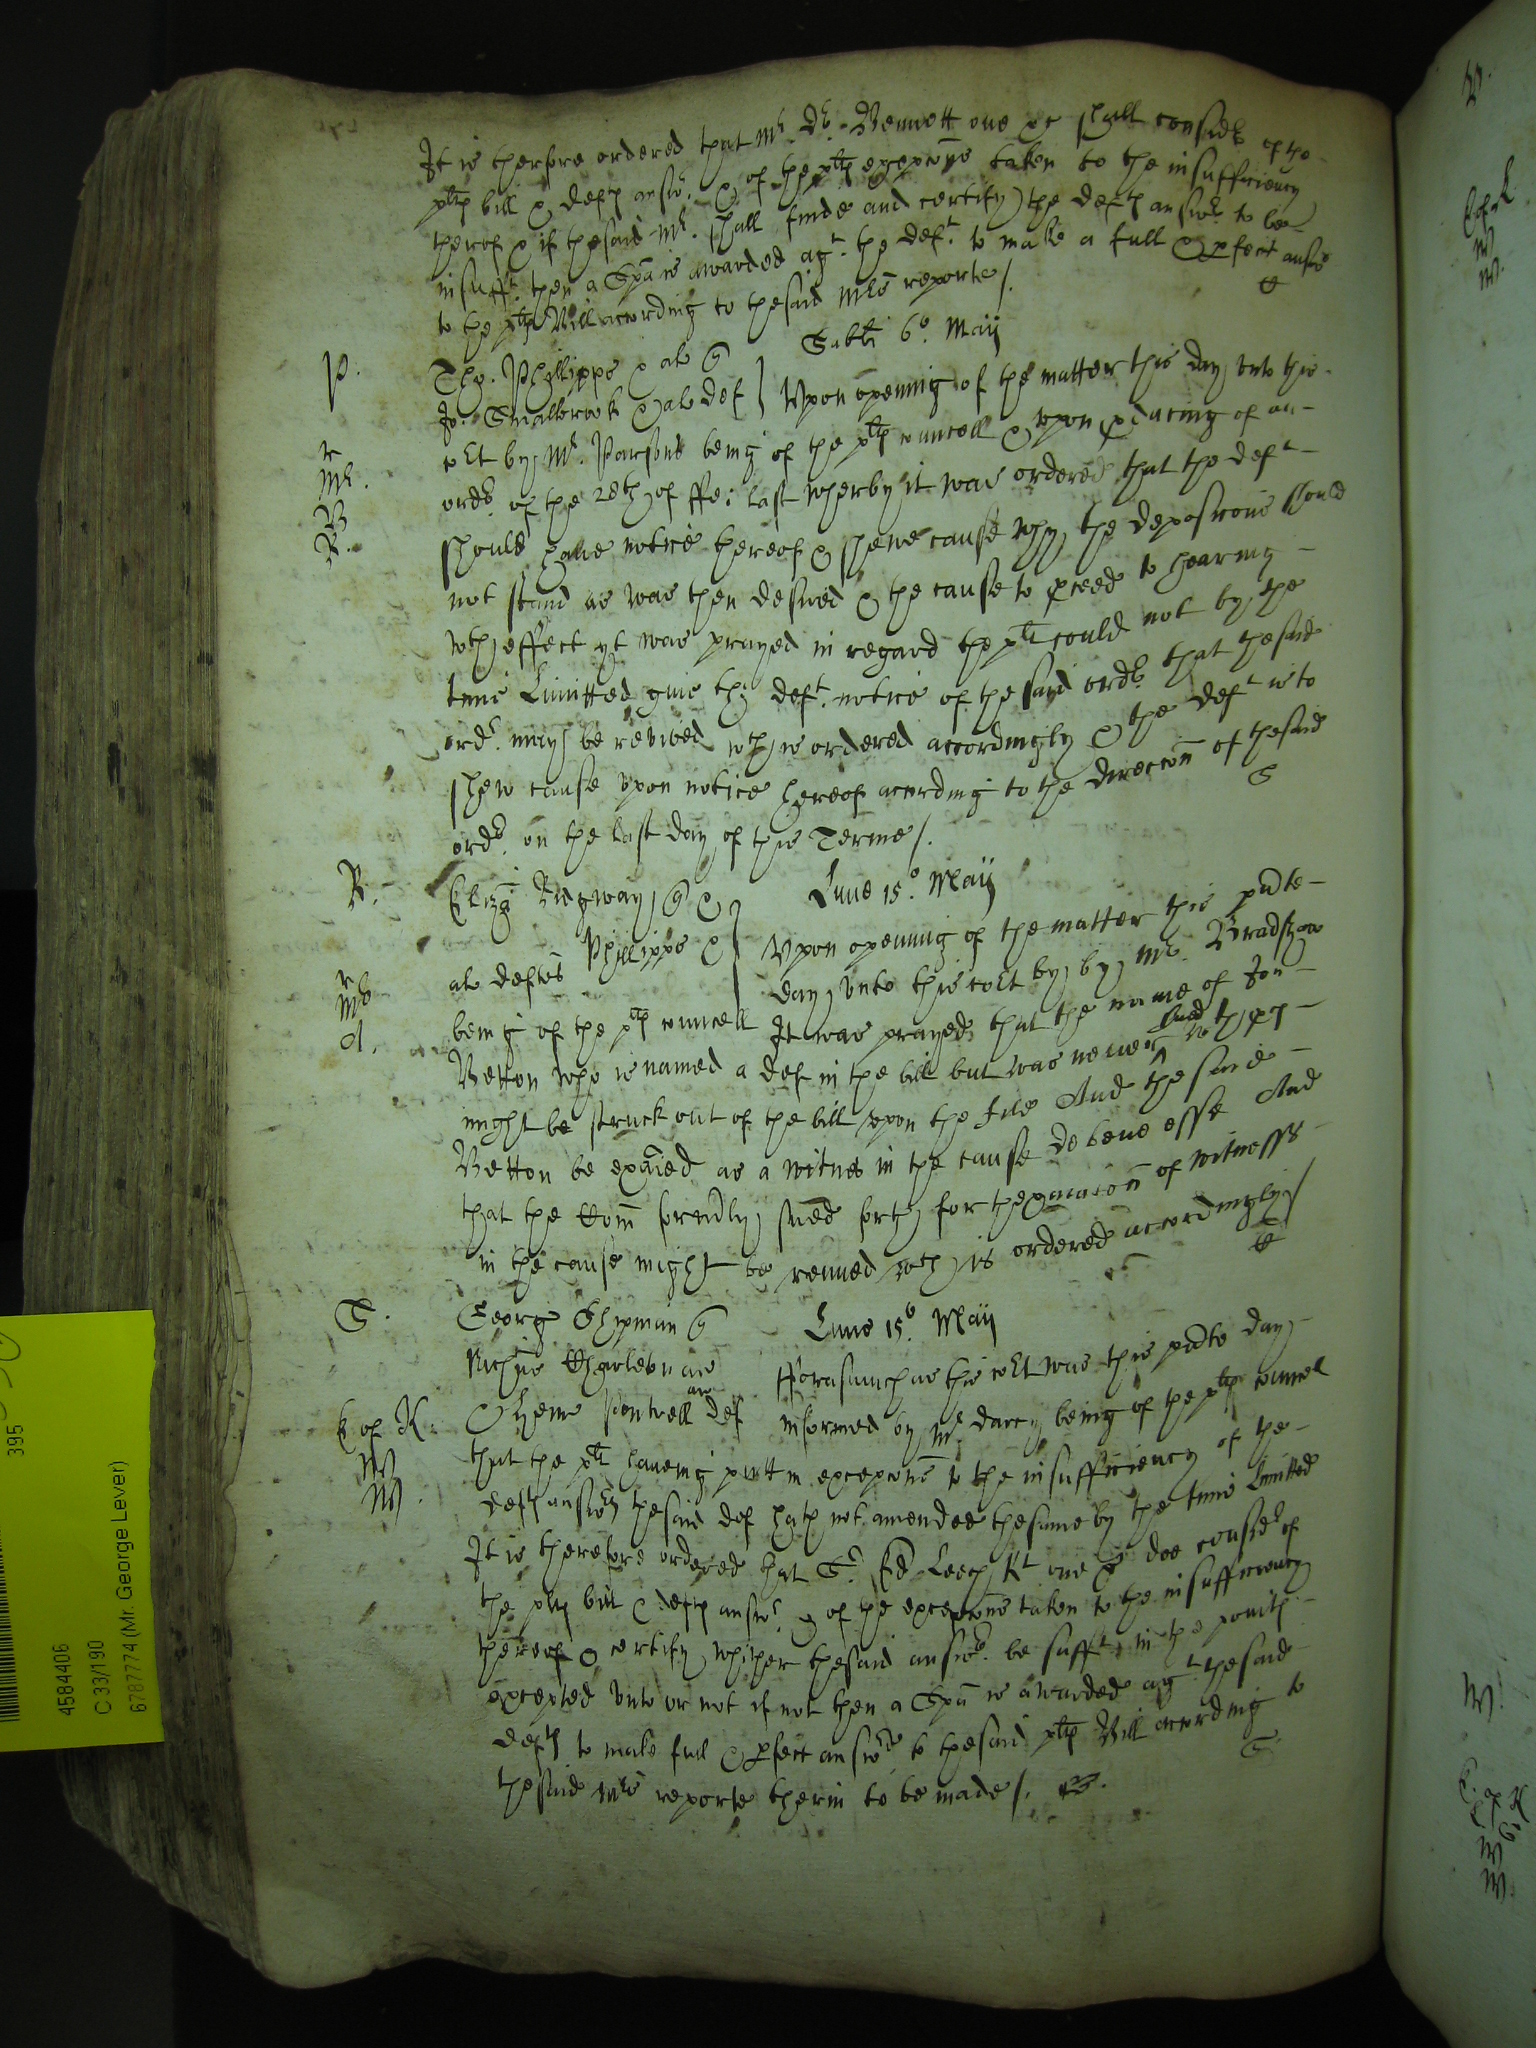 It is therfore ordered that Mr. Dr. Bennett one &c shall consider of the
pltes bill & deftes answr. & of the pltes excepcons taken to the insufficiency
therof & if thesaid Mr. shall finde and certify the deftes answer to be
insufft. then a Spa is awarded agt. the deft. to make a full & pfect answr
to the pltes Bill according to thesaid Mrs reporte/.
P. Tho. Phillipps & al Sabti 6o. Maij
Jo. Smalbrook & al def Upon opening of the matter this day unto this
r Mr. cort by Mr. Parsons being of the pltes councell & upon pducing of an
B ordr. of the 28th of ffe: last wherby it was ordered that the deft
R. should have notice thereof & shewe cause why the deposicons should
not stand as was then desired & the cause to pceed to hearing
wth effect yt was prayed in regard the plt could not by the
time Limitted give the deft. notice of the said ordr. that thesaid
ordr. may be revived wch is ordered accordingly & the deft is to
shew cause upon notice hereof according to the direccon of thesaid
ordr. on the last day of this Terme/.
R. Eliza Ridgway Lune 15o. Maij
Phillipps & Upon opening of the matter this pnte
r Mr al deftes day unto this cort by by Mr. Bradshaw
A. being of the pltes councell It was prayed that the name of Jon
Betton who is named a def in the bill but was never sued wth pc
might be struck out of the bill upon the file And the said
Betton be exaied as a witnes in the cause de bene esse And
that the Com formrly sued forth for thexaiacon of witnesss
in the cause might be renued wch is ordered accordingly/
S. Georg Shipman Lune 15o. Maij
Charleton ar fforasmuch as this cort was this pnte day
E of K: def informed by Mr darcy being of the pltes councel
W that the plt haveing putt in excepcons to the insufficiency of the
W. deftes answer thesaid def hath not amended thesame by the time limitted
It is therefore ordered that Sr. Ed Leech Kt one &c doe considr of
the pltes bill & deftes answr & of the excepcons taken to the insufficiency
thereof & certify whither thesaid answr. be sufft. in the points
excepted unto or not if not then a Spa is awarded agt thesaid
deftes to make full & pfect answer to thesaid pltes Bill according to
thesaid Mrs reporte therin to be made/.
395
4584406
C 33/190
6787774 (Mr. George Lever)